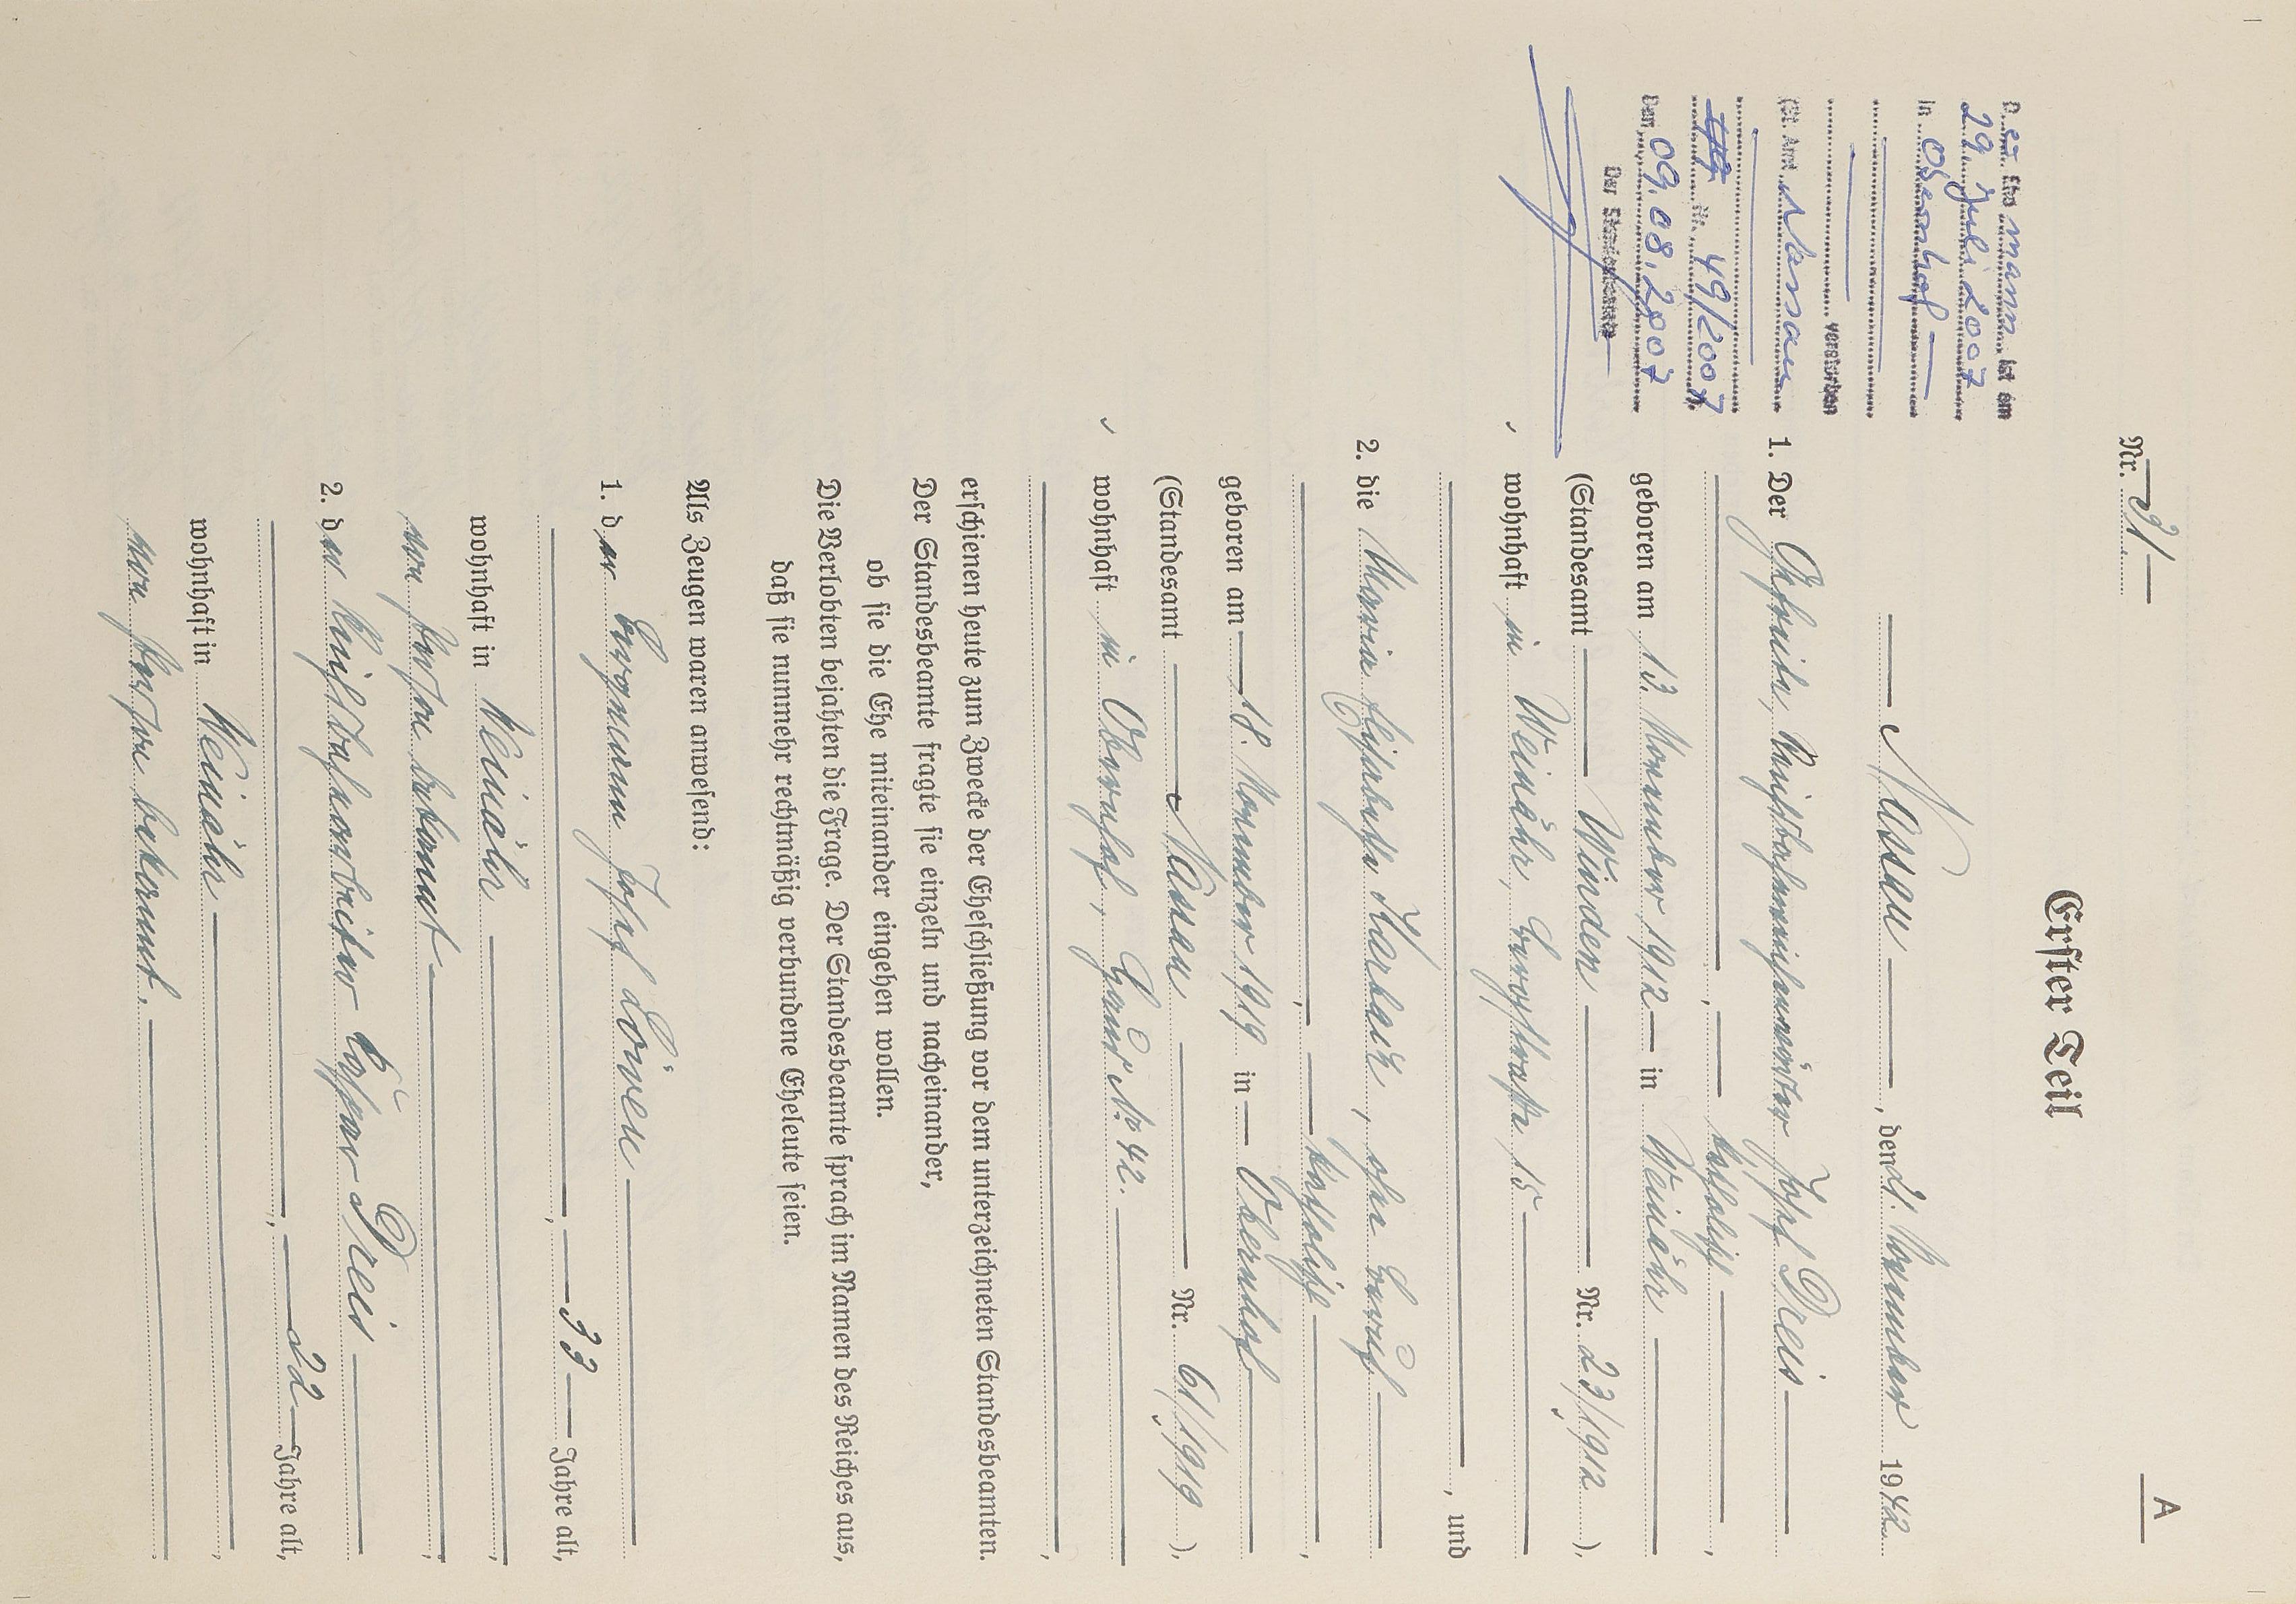 A
Nr. 31
Erster Teil
Nassau, den 21. November 1942
1. Der Gefreite, Reichsbahn Josef Dreis
, katholisch,
geboren am 13. November 1912 in Weinähr
(Standesamt Winden Nr. 23/1912),
wohnhaft in Weinähr, Borngasse 15
, und
2. die Maria Elisabeth Karbach, ohne Beruf
, katholisch,
geboren am 18. November 1919 in Obernhof
(Standesamt Nassau Nr. 61/1919),
wohnhaft in Obernhof, Haus No 42.
,
erschienen heute zum Zwecke der Eheschließung vor dem unterzeichneten Standesbeamten.
Der Standesbeamte fragte sie einzeln und nacheinander,
ob sie die Ehe miteinander eingehen wollen.
Die Verlobten bejahten die Frage. Der Standesbeamte sprach im Namen des Reiches aus,
daß sie nunmehr rechtmäßig verbundene Eheleute seien.
Als Zeugen waren anwesend:
1. der Bergmann Josef Löwen
, 33 Jahre alt,
wohnhaft in Weinähr,
von Person bekannt,
2. der Reichsbahnarbeiter Dreis
, 22 Jahre alt,
wohnhaft in Weinähr,
von Person bekannt.
D er Ehe mann ist am
29. Juli 2007
in Obernhof
verstorben
(St. Amt Nassau
Nr. 49/2007)
Den 09.08.2007
Der Standesbeamte